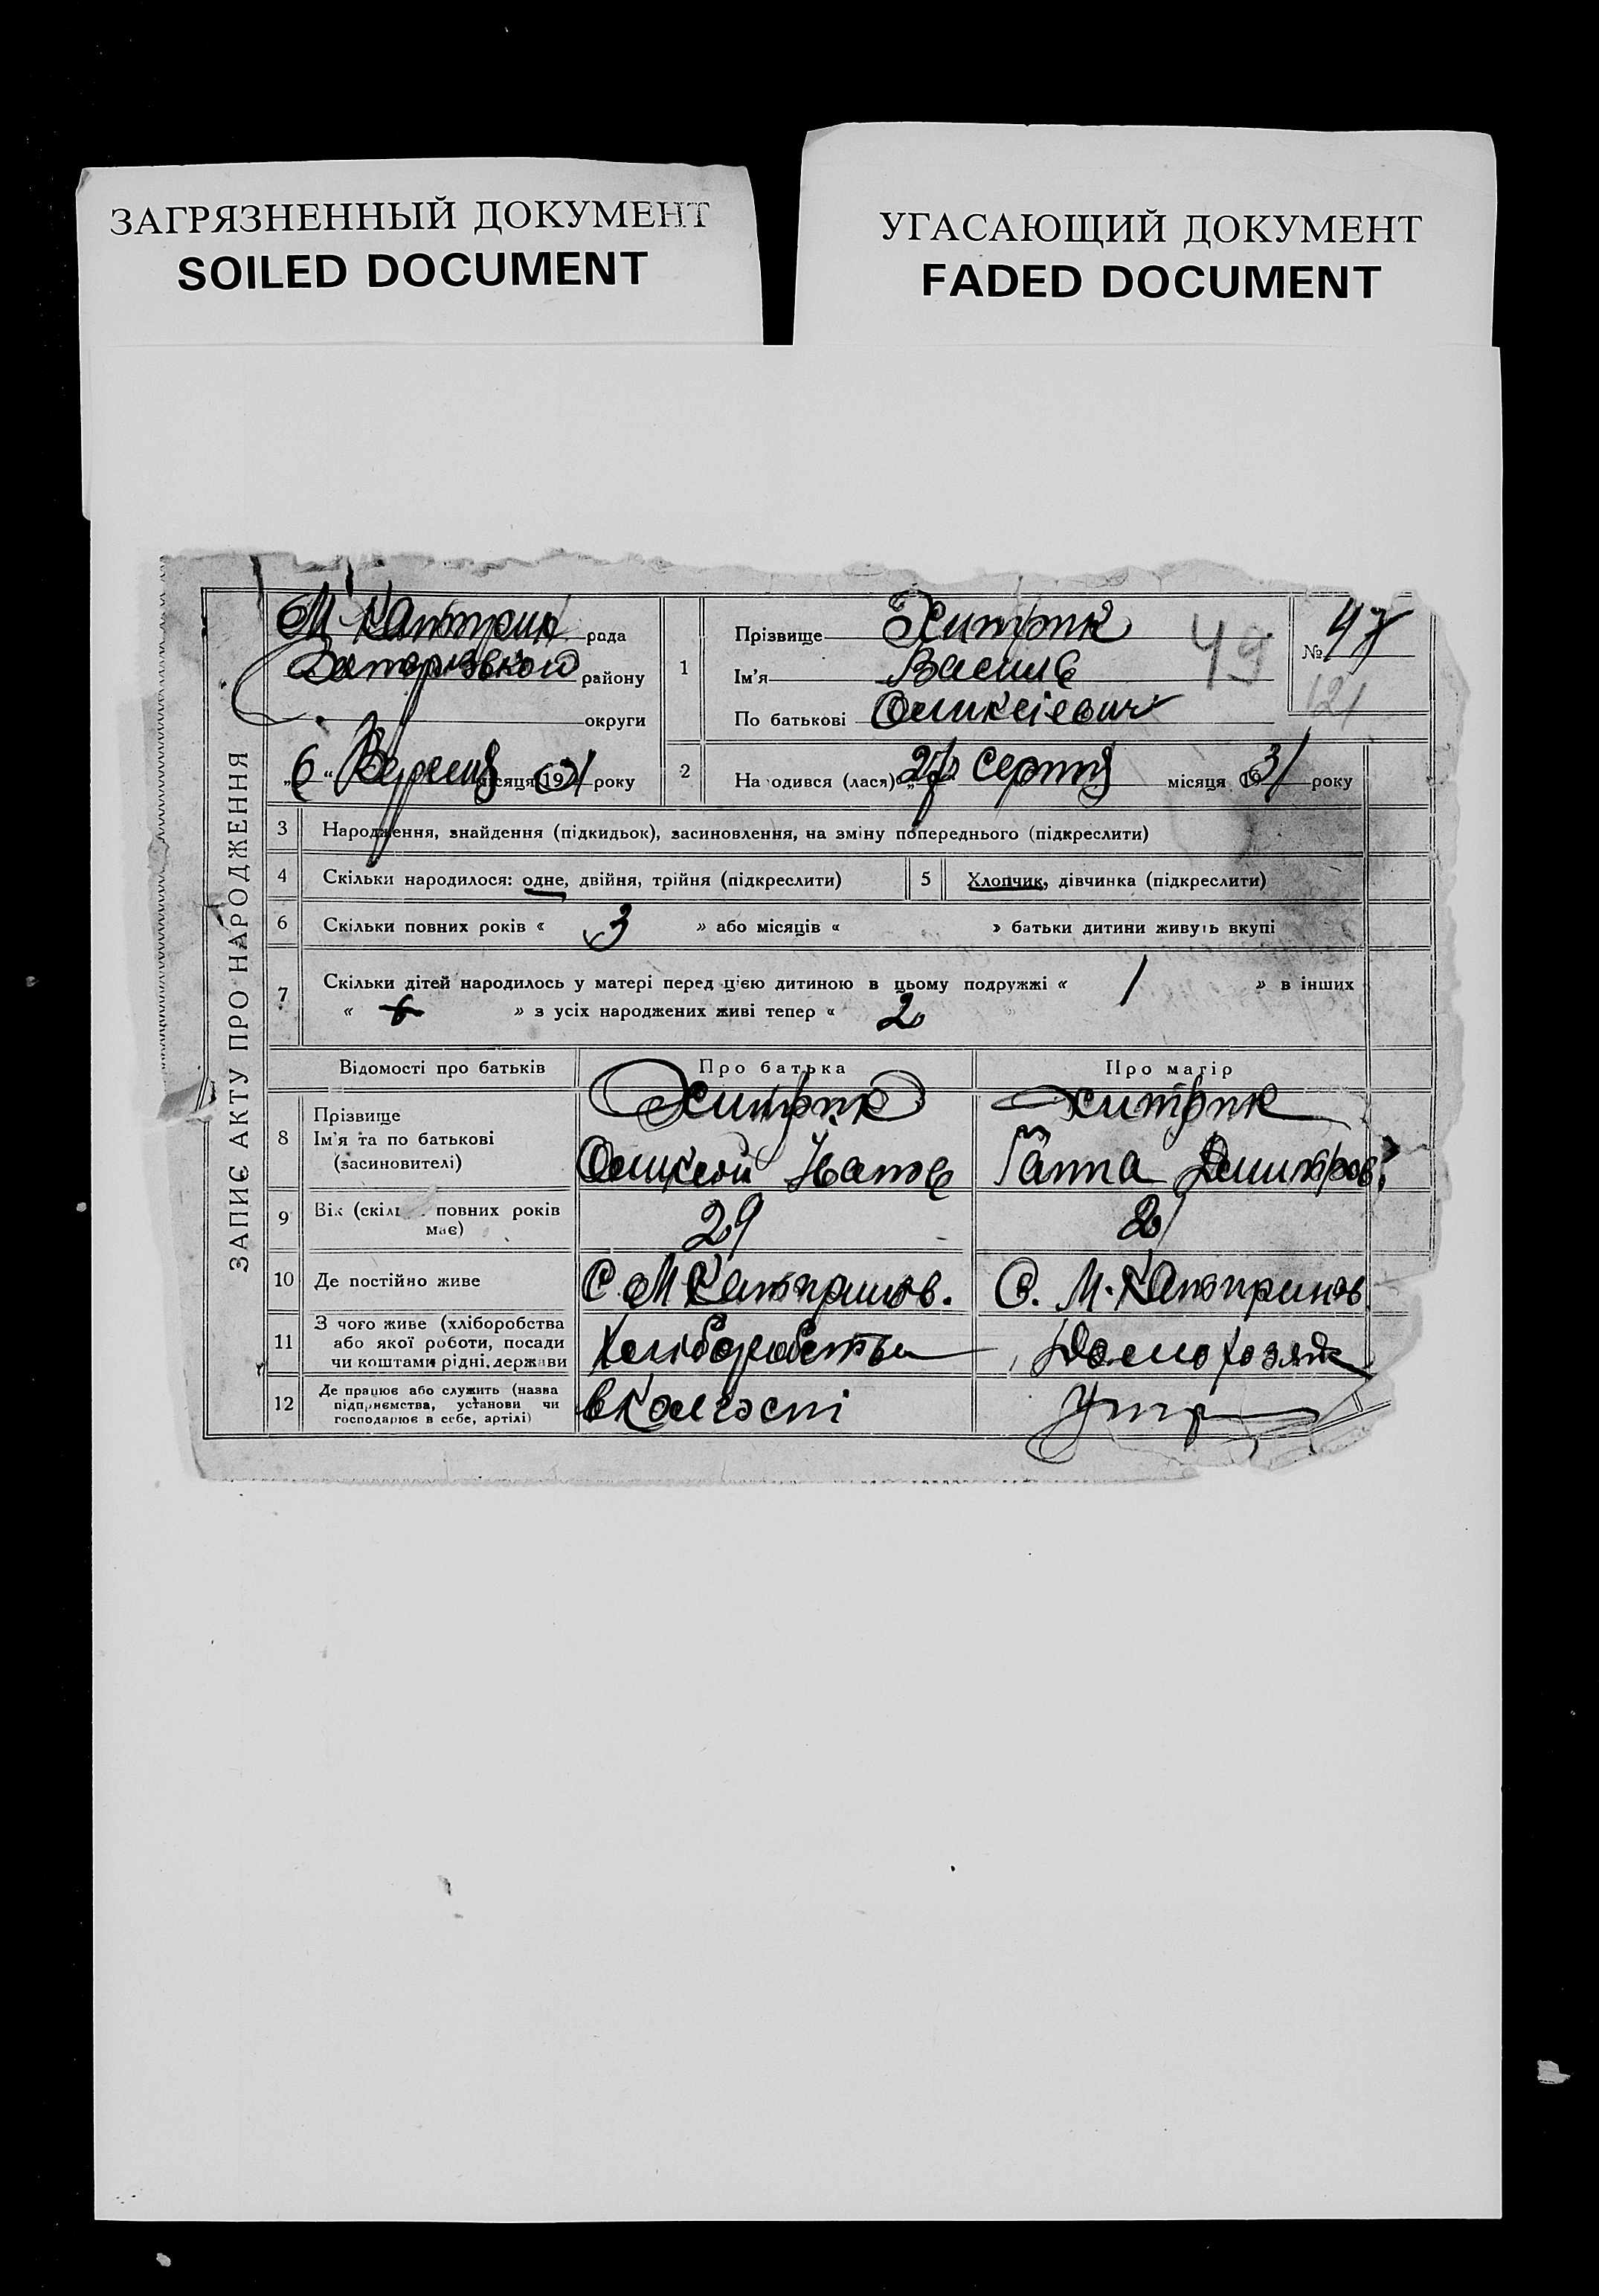 ЗАГРЯЗНЕННЫЙ ДОКУМЕНТ
SOILED DOCUMENT
УГАСАЮЩИЙ ДОКУМЕНТ
FADED DOCUMENT
ЗАПИС АКТУ ПРО НАРОДЖЕННЯ
М Катприн рада
району
округи
„6“ Вересня місяця 1931 року
1
Прізвище Хитрик 49
Ім'я Василь
По батькові Оликсієвич
№ 47
121
2
На одився (лася) „27“ Серпня місяця 1931 року
3 Народження, знайдення (підкидьок), засиновлення, на зміну попереднього (підкреслити)
4 Скільки народилося: одне, двійня, трійня (підкреслити)
5 Хлопчик, дівчинка (підкреслити)
6 Скільки повних років « 3 » або місяців « » батьки дитини живуть вкупі
7 Скільки дітей народилось у матері перед цією дитиною в цьому подружжі « 1 » в інших
« » з усіх народжених живі тепер « 2
Відомості про батьків Про батька Про матір
8 Прізвище
Ім'я та по батькові
(засиновителі)
Хитрик
Оликсій Іванов
Хитрик
Ганна Дмитров
9 Вік (скіл повних років
має)
29
10 Де постійно живе С. М Катпринов. С. М. Катпринов
11 З чого живе (хліборобства
або якої роботи, посади
чи коштами рідні, держави
Хліборобства
Домохозяй
12 Де працює або служить (назва
підприємства, установи чи
господарює в себе, артілі)
в Колгоспі